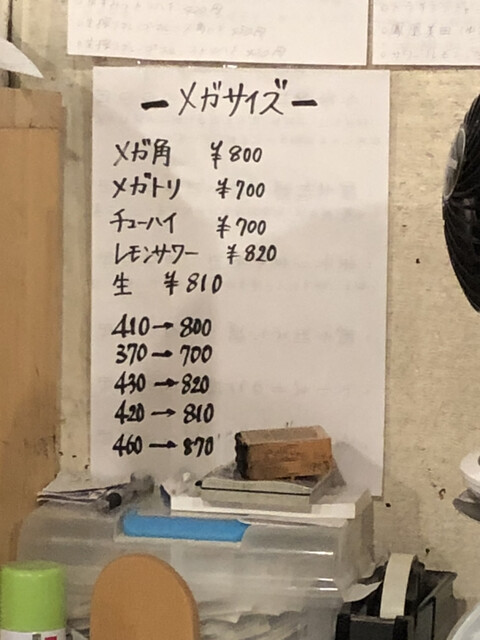 ーメガサイズー
メガ角 ¥800
メガトリ ¥700
チューハイ ¥700
レモンサワー ¥820
生 ¥810
410→800
370→700
430→820
420→810
460→870